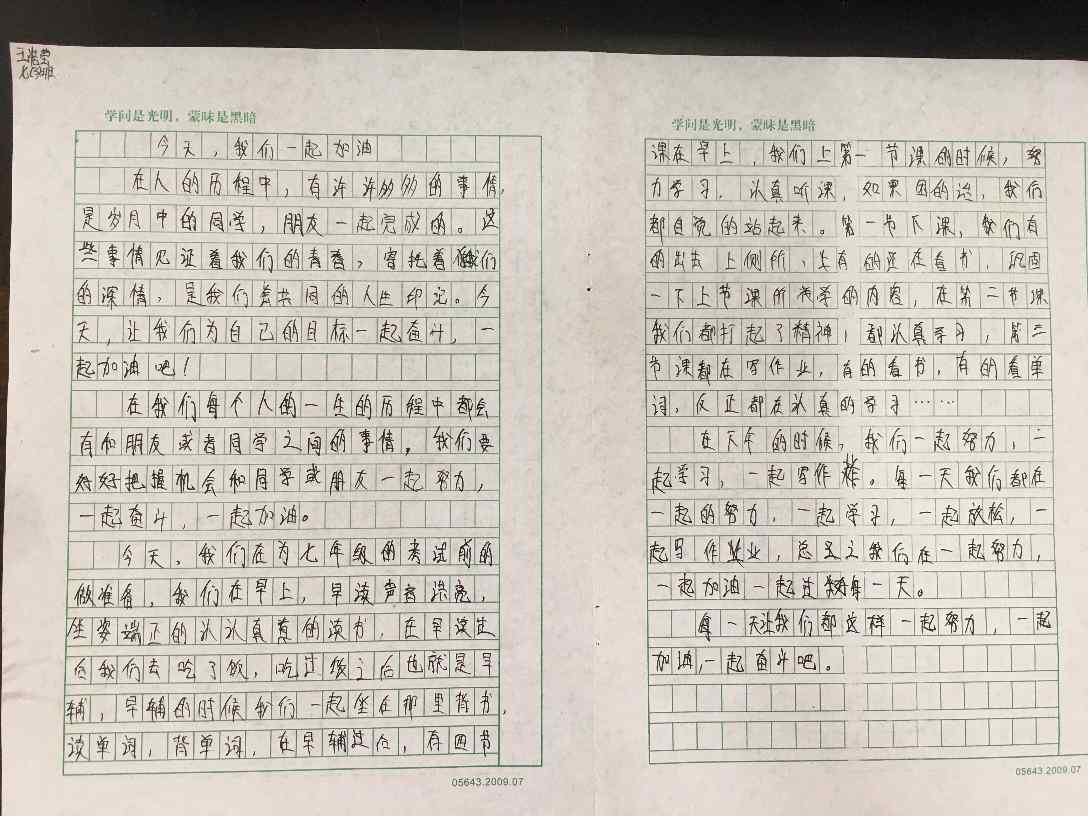 王浩莹
七(3)班
学问是光明，蒙昧是黑暗
今天，我们一起加油
在人的历程中，有许许多多的事情，
是岁月中的同学，朋友一起完成的。这
些事情见证着我们的青春，寄托着我们
的深情，是我们共同的人生印记。今
天，让我们为自己的目标一起奋斗，一
起加油吧！
在我们每个人的一生的历程中都会
有和朋友或者同学之间的事情，我们要
好好把握机会和同学或朋友一起努力，
一起奋斗，一起加油。
今天，我们在为七年级的考试前的
做准备，我们在早上，早读声音洪亮，
坐姿端正的认认真真的读书，在早读过
后我们去吃了饭，吃过饭之后也就是早
辅，早辅的时候我们一起坐在那里背书，
读单词，背单词，在早辅过后，有四节
05643.2009.07
学问是光明，蒙昧是黑暗
课在早上，我们上第一节课的时候，努
力学习，认真听课，如果困的话，我们
都自觉的站起来。第一节下课，我们有
的出去上侧所，有的还在看书，巩固
一下上节课所学的内容，在第二节课
我们都打起了精神，都认真学习，第三
节课都在写作业，有的看书，有的看单
词，反正都在认真的学习……
在下午的时候，我们一起努力，一
起学习，一起写作业。每一天我们都在
一起的努力，一起学习，一起放松，一
起写作业，总之我们在一起努力，
一起加油一起过每一天。
每一天让我们都这样一起努力，一起
加油，一起奋斗吧。
05643.2009.07